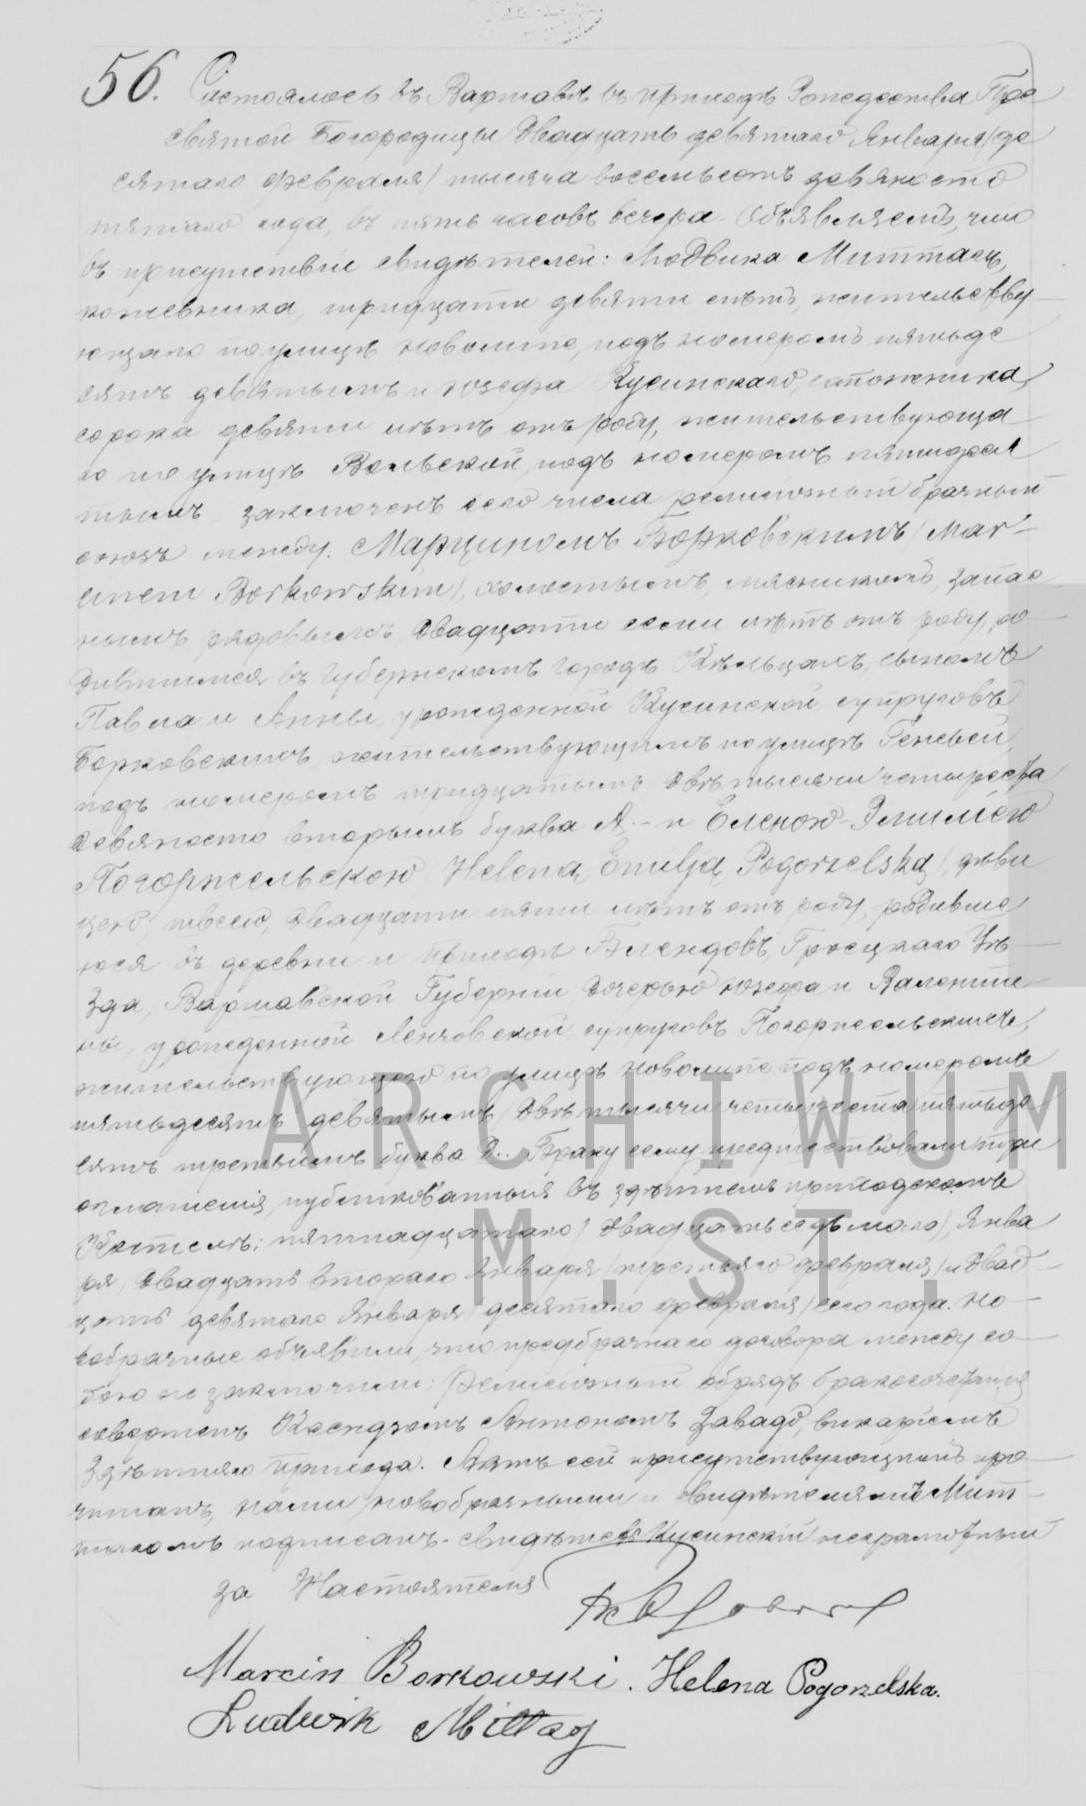 56. Состоялось въ Варшавѣ въ приходѣ Рождества Пре
святой Богородицы двадцать девятаго Января/де
сятаго Февраля/тысяча восемьсотъ девяносто
пятаго года, въ пять часовъ вечера. Объявляемъ, что
въ присутствіи свидѣтелей: Людвика Миттагъ,
кожевника, тридцати девяти лѣтъ, жительству
ющаго по улицѣ Новолипе, подъ номеромъ пятьде
сятъ девятымъ и Юзефа Кусинскаго, сапожника,
сорока девяти лѣтъ отъ роду, жительствующа
го по улицѣ Вольской подъ номеромъ
тымъ заключенъ сего числа религіозный брачный
союзъ между: Марциномъ Борковскимъ/Mar-
cinem Borkowskim/, холостымъ, мясникомъ, запас
нымъ рядовымъ двадцати семи лѣтъ отъ роду, ро
дившимся въ Губернскомъ городѣ Кѣльцахъ, сыномъ
Павла и Анны, урожденной Кусинской супруговъ
Борковскихъ жительствующимъ по улицѣ Генсьей,
подъ номеромъ тридцатымъ двѣ тысячи четыреста
девяносто вторымъ буква А. - и Еленою-Эмиліею
Погоржельскою/Helena, Emilja Pogorzelska/, дѣви
цею, двадцати пяти лѣтъ отъ роду, родивше
юся въ деревни и приходѣ Блендовъ, Гроецкаго Уѣ
зда, Варшавской Губерніи дочерью Юзефа и Валенти
ны, урожденной Ленчовской супруговъ Погоржельскихъ,
жительствующею по улицѣ Новолипе подъ номеромъ
пятьдесятъ девятымъ/двѣ тысячи четыреста пятьде
сятъ третьимъ буква D.. Браку сему предшествовали три
оглашенія, публикованныя въ здѣшнемъ приходскомъ
Костелѣ: пятнадцатаго/двадцать седьмаго/, Янва
ря, двадцать втораго Января/третьяго Февраля/и двад
цать девятаго Января/десятаго Февраля/сего года. Но
вобрачные объявили, что предбрачнаго договора между со
бою не заключили: Религіозный обрядъ бракосочетанія
совершенъ Ксендзомъ Антономъ Завадо, викаріемъ
здѣшняго прихода. Актъ сей присутствующимъ про
читанъ, нами, новобрачными и свидѣтелямъ Мит
тагомъ подписанъ. свидѣтель Кусинскій неграмотный
за Настоятеля
Marcin Borkowski. Helena Pogorzelska.
Ludwik Mittag
ARCHIWUM
M. ST.